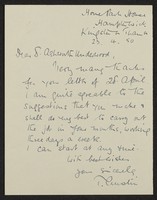 Home Park House
Hampton Wick
Kingston
28. 4. 50
Dear Dr Ashworth Underwood,
Very many thanks
for your letter of 25 April
I am quite agreeable to the
suggestions that you make &
shall do my best to carry out
the job in your months, working
three days a week.
I can start at any time
With kind wishes
Yours sincerely